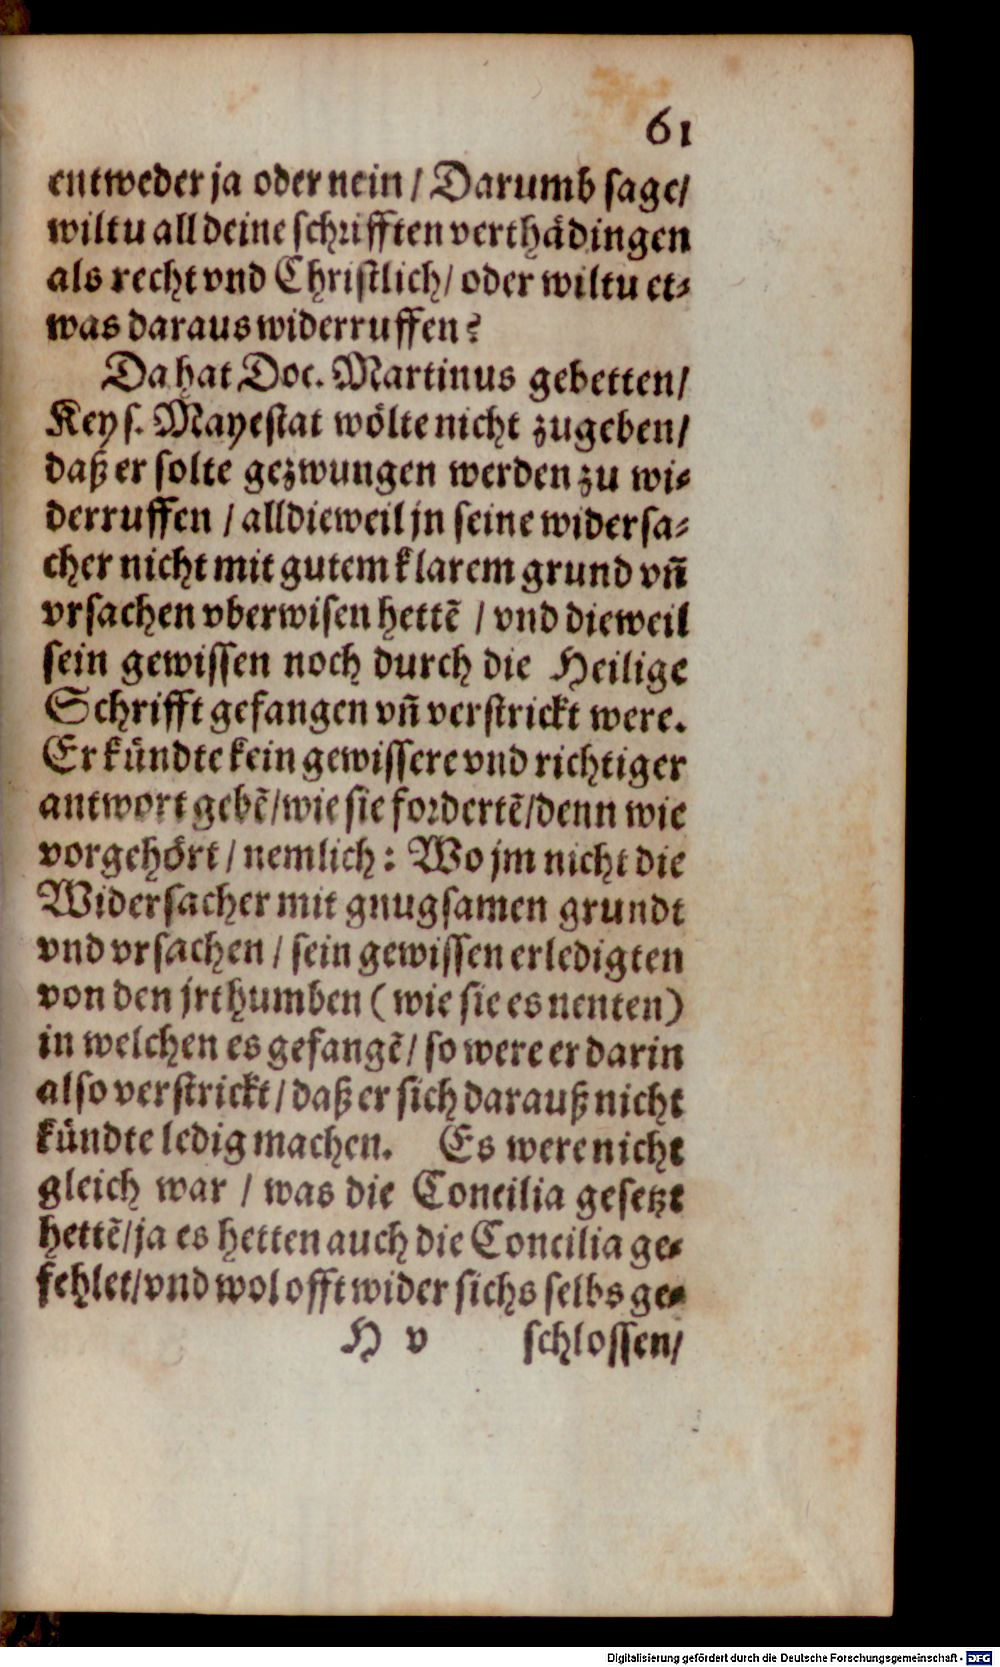 61
entweder ja oder nein / Darumb sage/
wiltu all deine schrifften verthädingen
als recht vnd Christlich/ oder wiltu et-
was daraus widerruffen?
Da hat Doc. Martinus gebetten/
Keys. Mayestat wölte nicht zugeben/
daß er solte gezwungen werden zu wi-
derruffen / alldieweil jn seine widersa-
cher nicht mit gutem klarem grund vn̄
vrsachen vberwisen hettē / vnd dieweil
sein gewissen noch durch die Heilige
Schrifft gefangen vn̄ verstrickt were.
Er kündte kein gewissere vnd richtiger
antwort gebē/wie sie fordertē/denn wie
vorgehört / nemlich: Wo jm nicht die
Widersacher mit gnugsamen grundt
vnd vrsachen / sein gewissen erledigten
von den jrthumben (wie sie es nenten)
in welchen es gefangē/ so were er darin
also verstrickt/ daß er sich darauß nicht
kündte ledig machen. Es were nicht
gleich war / was die Concilia gesetzt
hettē/ja es hetten auch die Concilia ge-
fehlet/vnd wol offt wider sichs selbs ge-
H v schlossen/
Digitalisierung gefördert durch die Deutsche Forschungsgemeinschaft - DFG